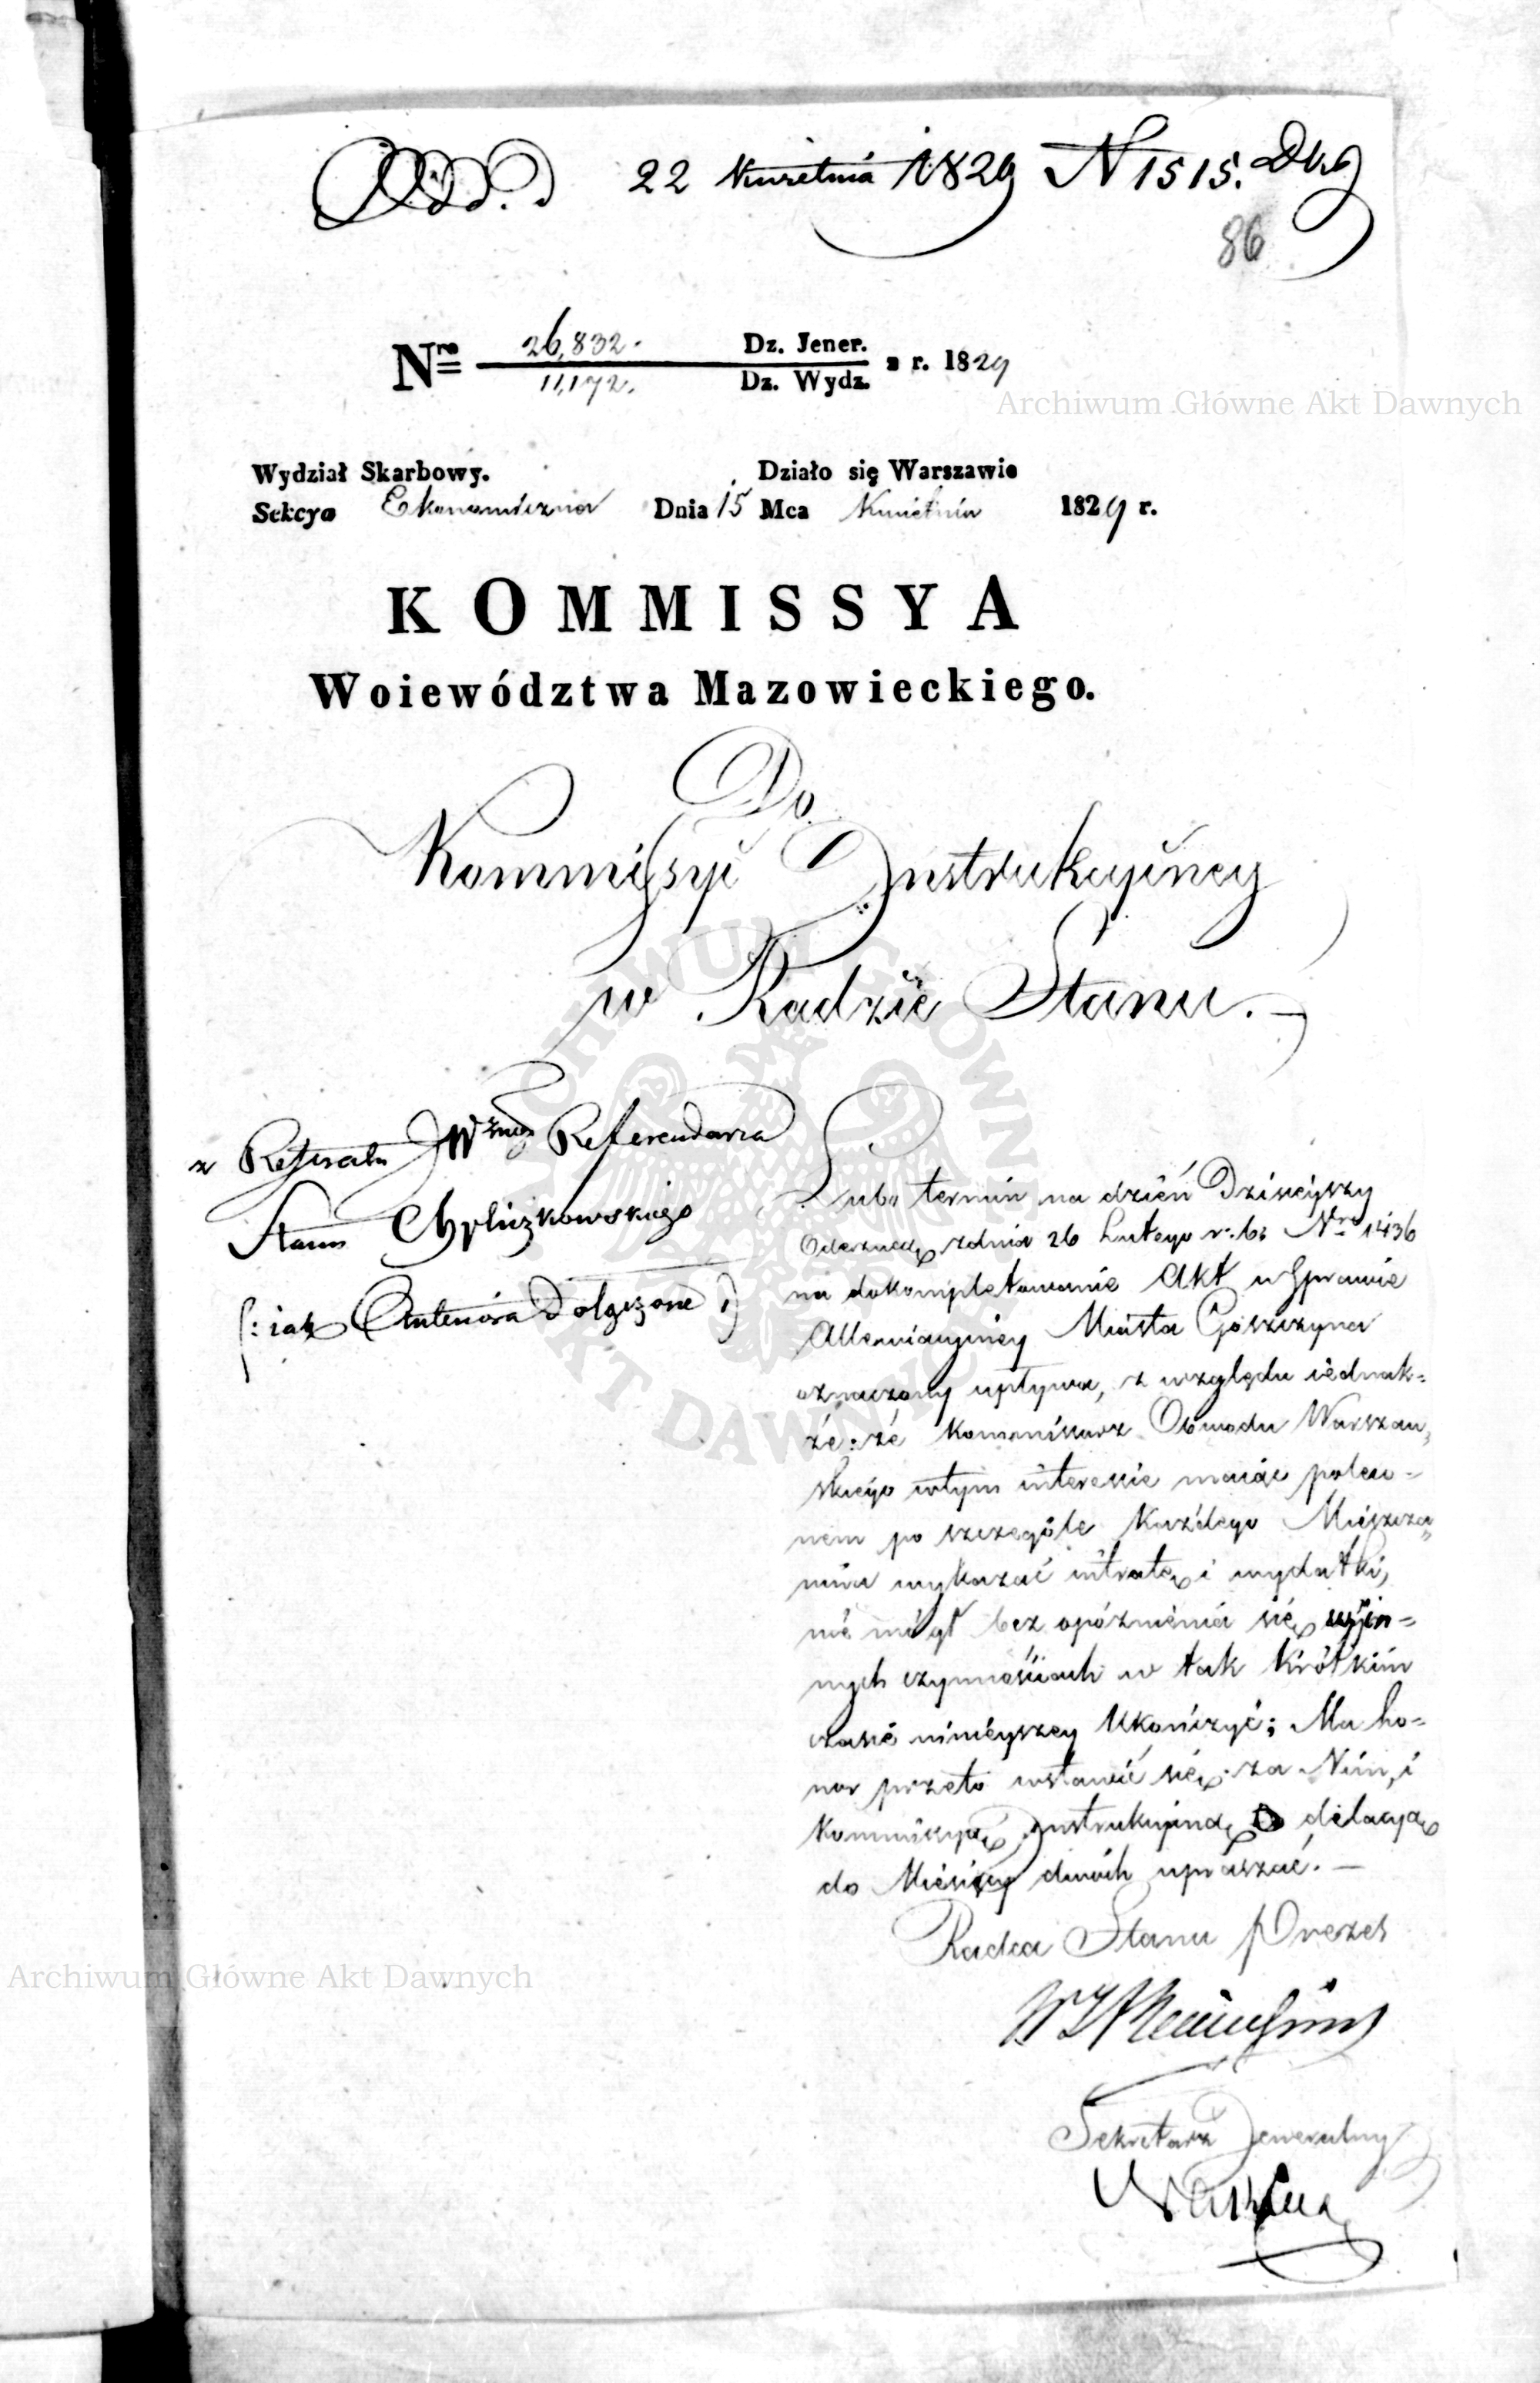 22 Kwietnia 1829 N 1515.
86
Nro 26,832. Dz. Jener.
11,172. Dz. Wydz. z r. 1829
Archiwum Główne Akt Dawnych
Wydział Skarbowy. Działo się Warszawie
Sekcya Ekonomiczna Dnia 15 Mca Kwietnia 1829 r.
KOMMISSYA
Woiewództwa Mazowieckiego.
Do
Kommissyi Instrukcyiney
w Radzie Stanu.
z Referatu JW Referendarza
Stanu
(: iak Anteriora Dołączone :)
Lubo termin na dzień Dzisieyszy
Odezwą z dnia 26 Lutego r. b. Nro 1436
na dokompletowanie Akt w Sprawie
Miasta Goszczyna
oznaczony upływa, z względu iednak=
że: że Kommissarz Obwodu Warszaw=
skiego w tym interessie maiąc polec=
nem po szczególe Każdego Mieszcza=
nina wykazać intratę i wydatki,
nie mógł bez opóźnienia się w in=
nych czynnościach w tak Krótkim
czasie ninieyszey Ukończyć; Ma ho=
nor przeto wstawić się za Nim, i
Kommissyą Instrukcyiną o dilacyą
do Miesięcy dwóch upraszać. —
Radca Stanu Prezes
Archiwum Główne Akt Dawnych
Sekretarz Jeneralny
ARCHIWUM GŁÓWNE AKT DAWNYCH